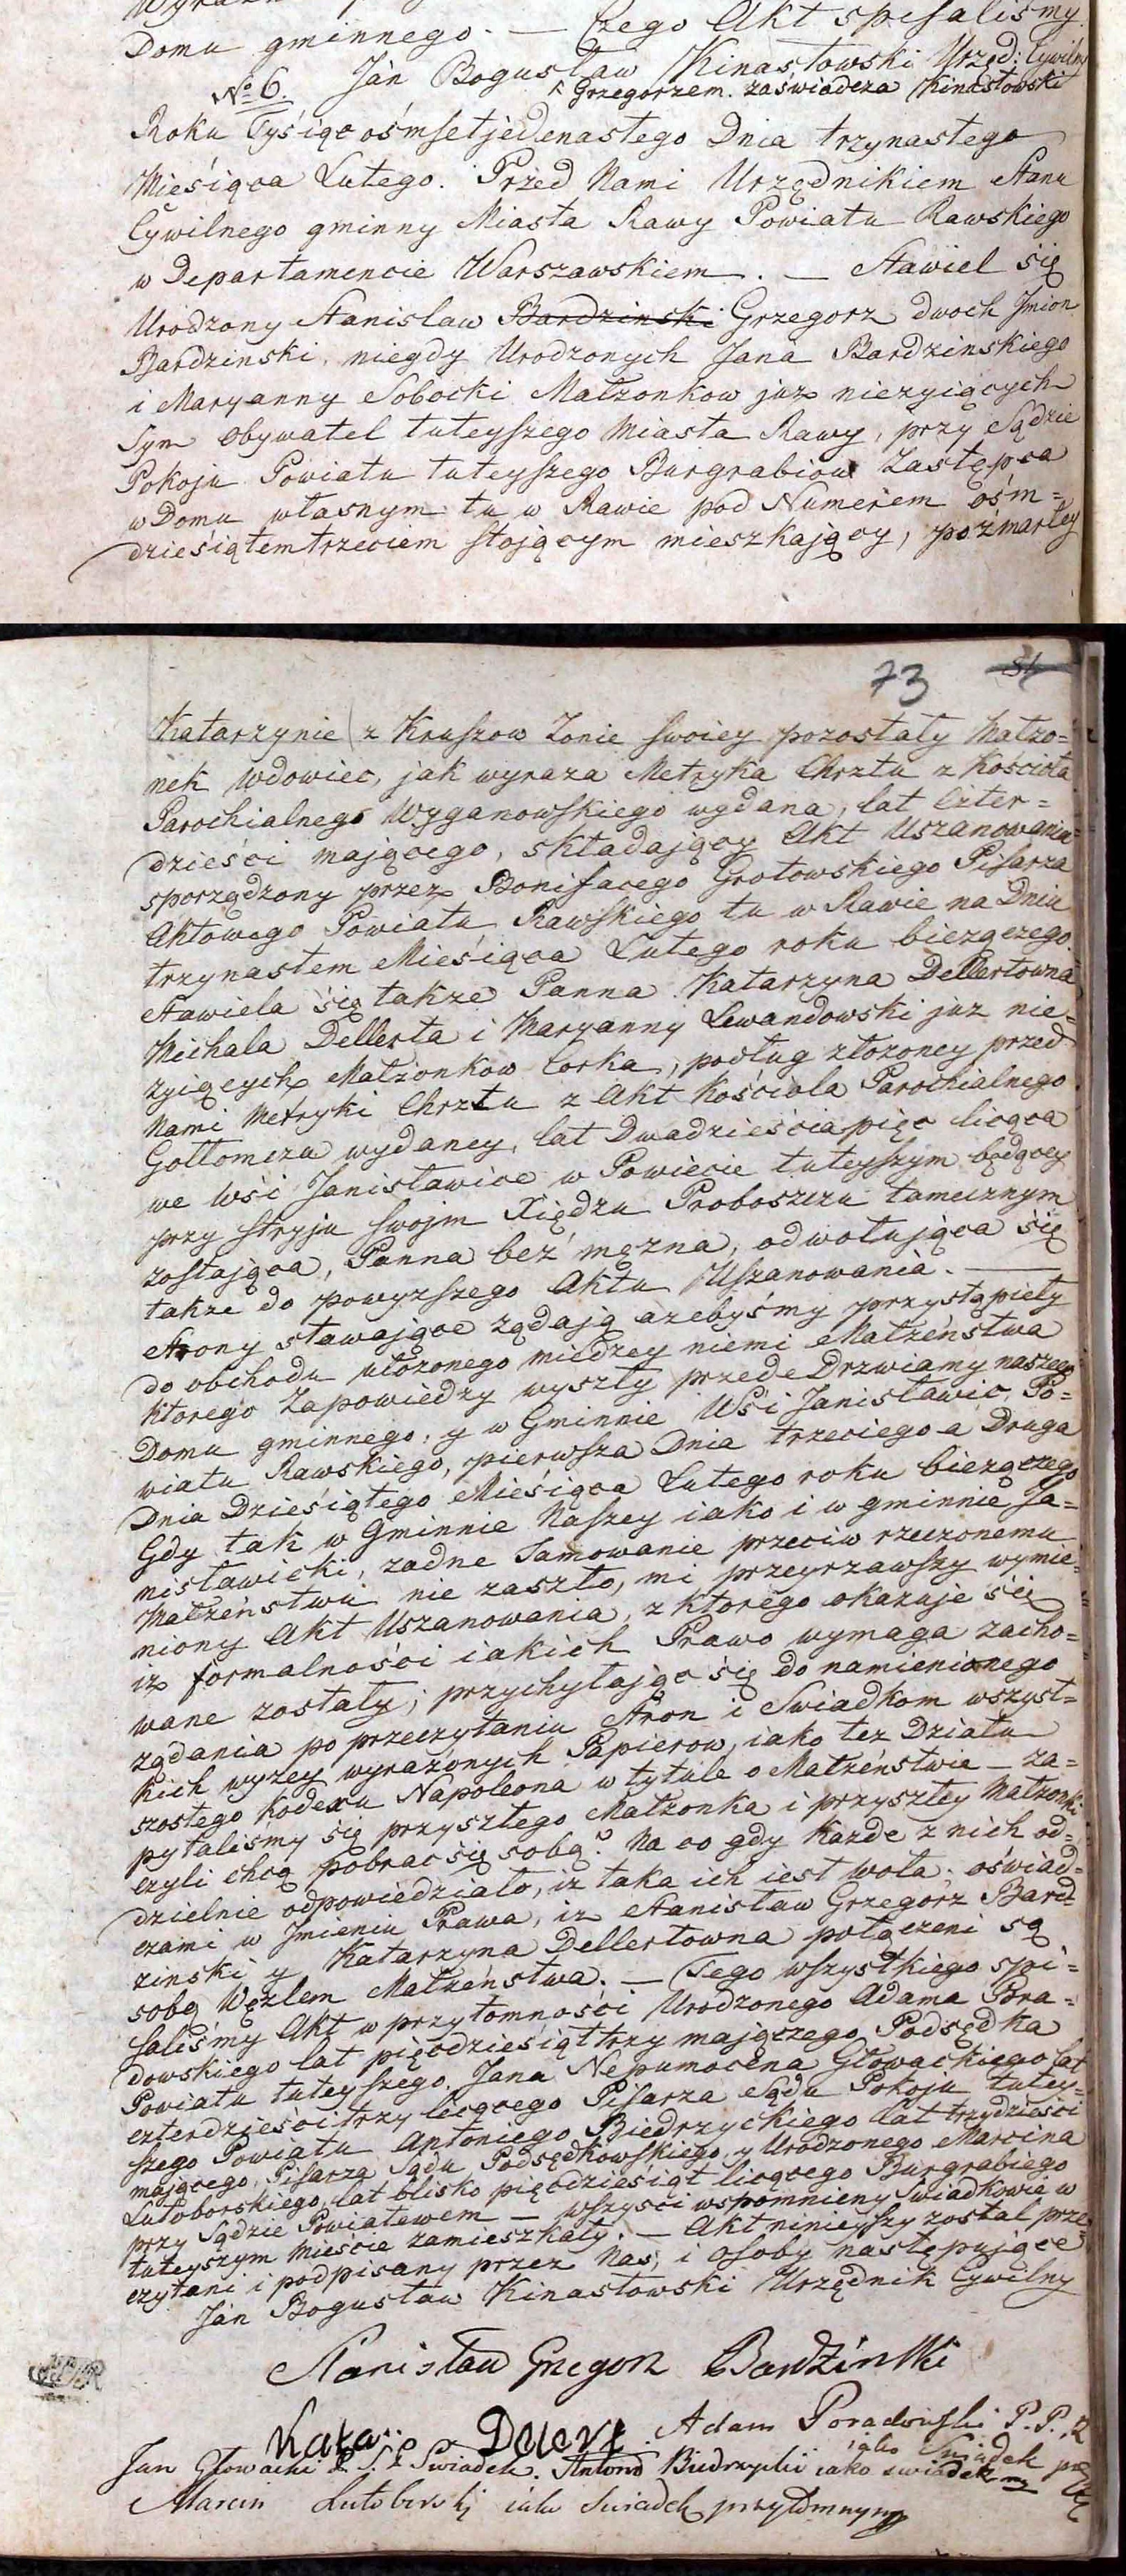 Domu gminnego. — Czego Akt spisaliśmy.
Jan Bogusław Kinastowski Urzęd: Cywilny
No 6. Grzegorzem. zaświadcza Kinastowski
Roku Tysiąc ośmset jedenastego Dnia trzynastego
Miesiąca Lutego. Przed Nami Urzędnikiem Stanu
Cywilnego gminny Miasta Rawy Powiatu Rawskiego
w Departamencie Warszawskiem. — Stawiel się
Urodzony Stanislaw Bardzinski Grzegorz dwoch Jmion
Bardzinski, niegdy Urodzonych Jana Bardzinskiego
i Maryanny Sobocki Małzonkow juz niezyiących
Syn Obywatel tuteyszego Miasta Rawy, przy Sądzie
Pokoju Powiatu tuteyszego Burgrabiow Zastępca
w Domu własnym tu w Rawie pod Numerem ośm=
dziesiątem trzeciem stojącym mieszkający, po zmarłey
73 51
Katarzynie z Kruszow Zonie swoiey pozostały Małzo=
nek Wdowiec, jak wyraza Metryka Chrztu z Kościoła
Parochialnego Wyganowskiego wydana, lat Czter=
dzieści mającego, składający Akt Uszanowania
sporządzony przez Bonifacego Grotowskiego Pisarza
Aktowego Powiatu Rawskiego tu w Rawie na Dniu
trzynastem Miesiąca Lutego roku biezączego.
Stawiela się takze Panna Katarzyna Dellertowna
Michala Dellerta i Maryanny Lewandowski juz nie=
zyiących Małzonkow Corka, podług złozoney przed
Nami Metryki Chrztu z Akt Kościola Parochialnego
Gottomeza wydaney, lat Dwadzieścia pięc licąca
we Wśi Janisławice w Powiecie tuteyszym będącey
przy stryju swojm Xiędzu Proboszczu tamecznym
zostająca, Panna bez męzna, odwołująca się
takze do powyzszego Aktu Uszanowania. —
Strony stawające ządają azebyśmy przystąpiely
do obchodu ułozonego miedzey niemi Małzeństwa
ktorego Zapowiedzy wyszły przede Drzwiamy naszego
Domu gminnego, y w Gminnie Wśi Janisławic, Po=
wiatu Rawskiego, pierwsza Dnia trzeciego a Druga
Dnia Dziesiątego Miesiąca Lutego roku biezączego
Gdy tak w Gminnie Naszey iako i w gminnie Ja=
nisławicki, zadne Tamowanie przeciw rzeczonemu
Małzeństwu nie zaszło, mi przeyrzawszy wymie=
niony Akt Uszanowania, z ktorego okazuje się
iz formalnośći iakich Prawo wymaga zacho=
wane zostały, przychylając się do namienionego
ządania po przeczytaniu Stron i Swiadkom wszyst=
kich wyzey wyrazonych Papierow, iako tez Działu
szostego Kodexu Napoleona w tytule o Małzeństwie — za=
pytaliśmy się przyszłego Małzonka i przyszłey Małzonki
czyli chcą pobrac się sobą? Na co gdy kazde z nich od=
dzielnie odpowiedziało, iz taka ich iest wola, oświad=
czami w Jmieniu Prawa, iz Stanisław Grzegorz Bard=
zinski y Katarzyna Dellertowna połączeni są
sobą Węzlem Małzeństwa. — Tego wszystkiego spi=
saliśmy Akt w przytomnośći Urodzonego Adama Pora=
dowskiego lat pięcdziesiąt trzy mającego Podsędka
Powiatu tuteyszego, Jana Nepumocena Głowackiego lat
czterdzieści trzy licącego Pisarza Sądu Pokoju tutey=
szego Powiatu Antoniego Biedrzyckiego lat trzydzieści
mającego, Pisarza Sądu Podsędkowskiego, y Urodzonego Marcina
Lutoborskiego, lat blisko pięcdziesiąt licącego Burgrabiego
przy Sądzie Powiatowem — wszysci wspomnieny Swiadkowie w
tuteyszym Mieście zamieszkały. — Akt ninieyszy został prze=
czytani i podpisany przez Nas, i Osoby następujące
Jan Bogusław Kinastowski Urzędnik Cywilny
Stanisław Gregorz Bardzinski
Adam Poradowski P. P. R
jako Swiadek
Jan Głowacki P. S. P. Swiadek. Antoni Biedrzycki iako swiadek
Marcin Lutoborski iako Swiadek przytomny